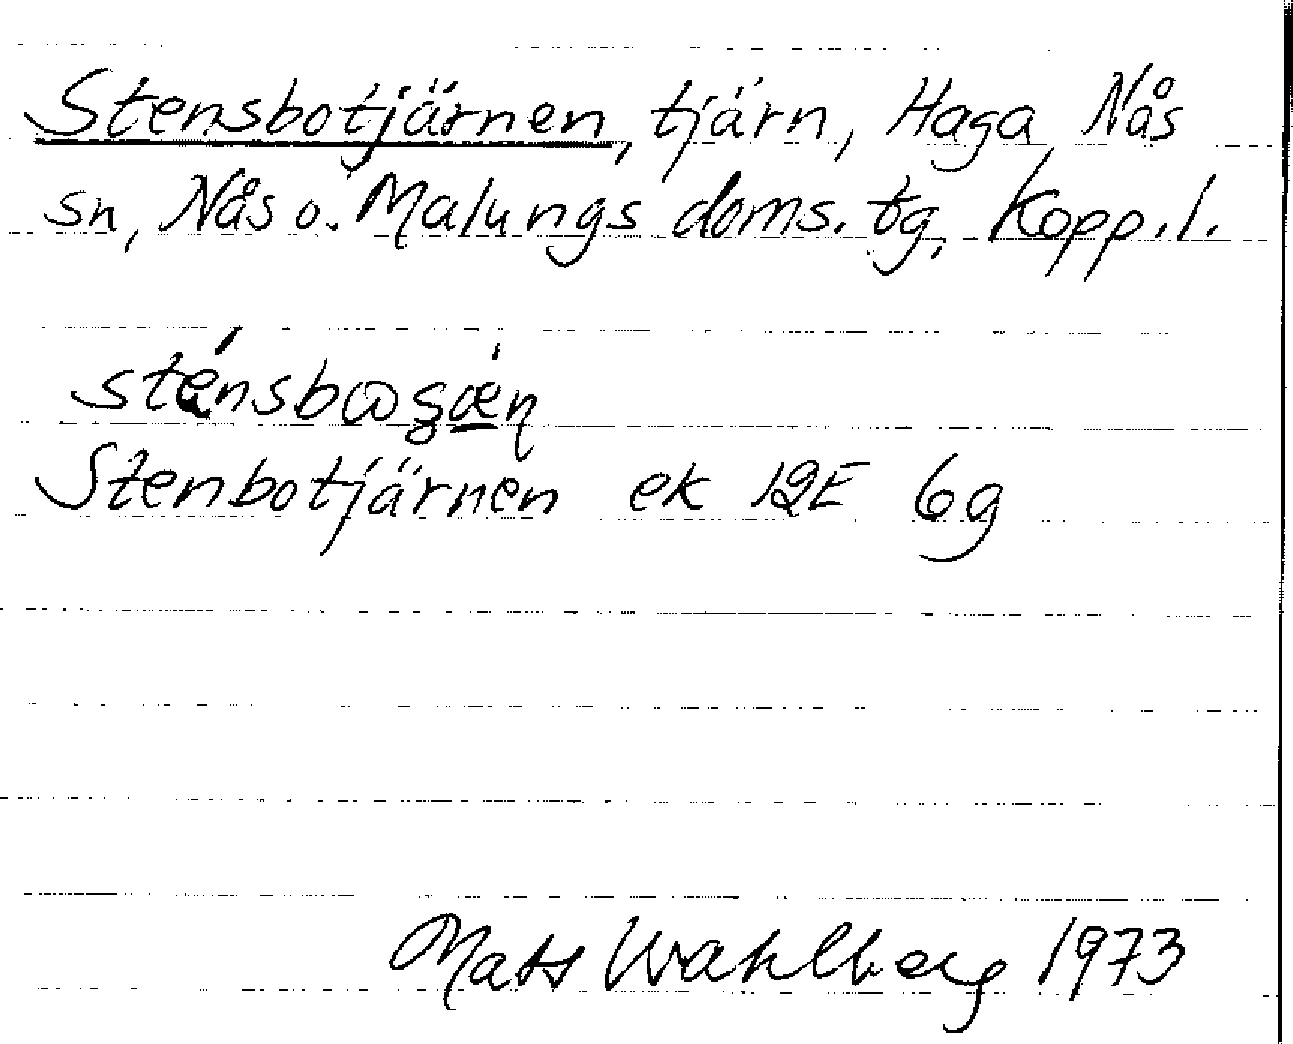 Stensbotjärnen, tjärn, Haga Nås
sn, Nås o. Malungs doms. tg, Kopp.l.
Stenbotjärnen ek 12E 6g
Mats Wahlberg 1973